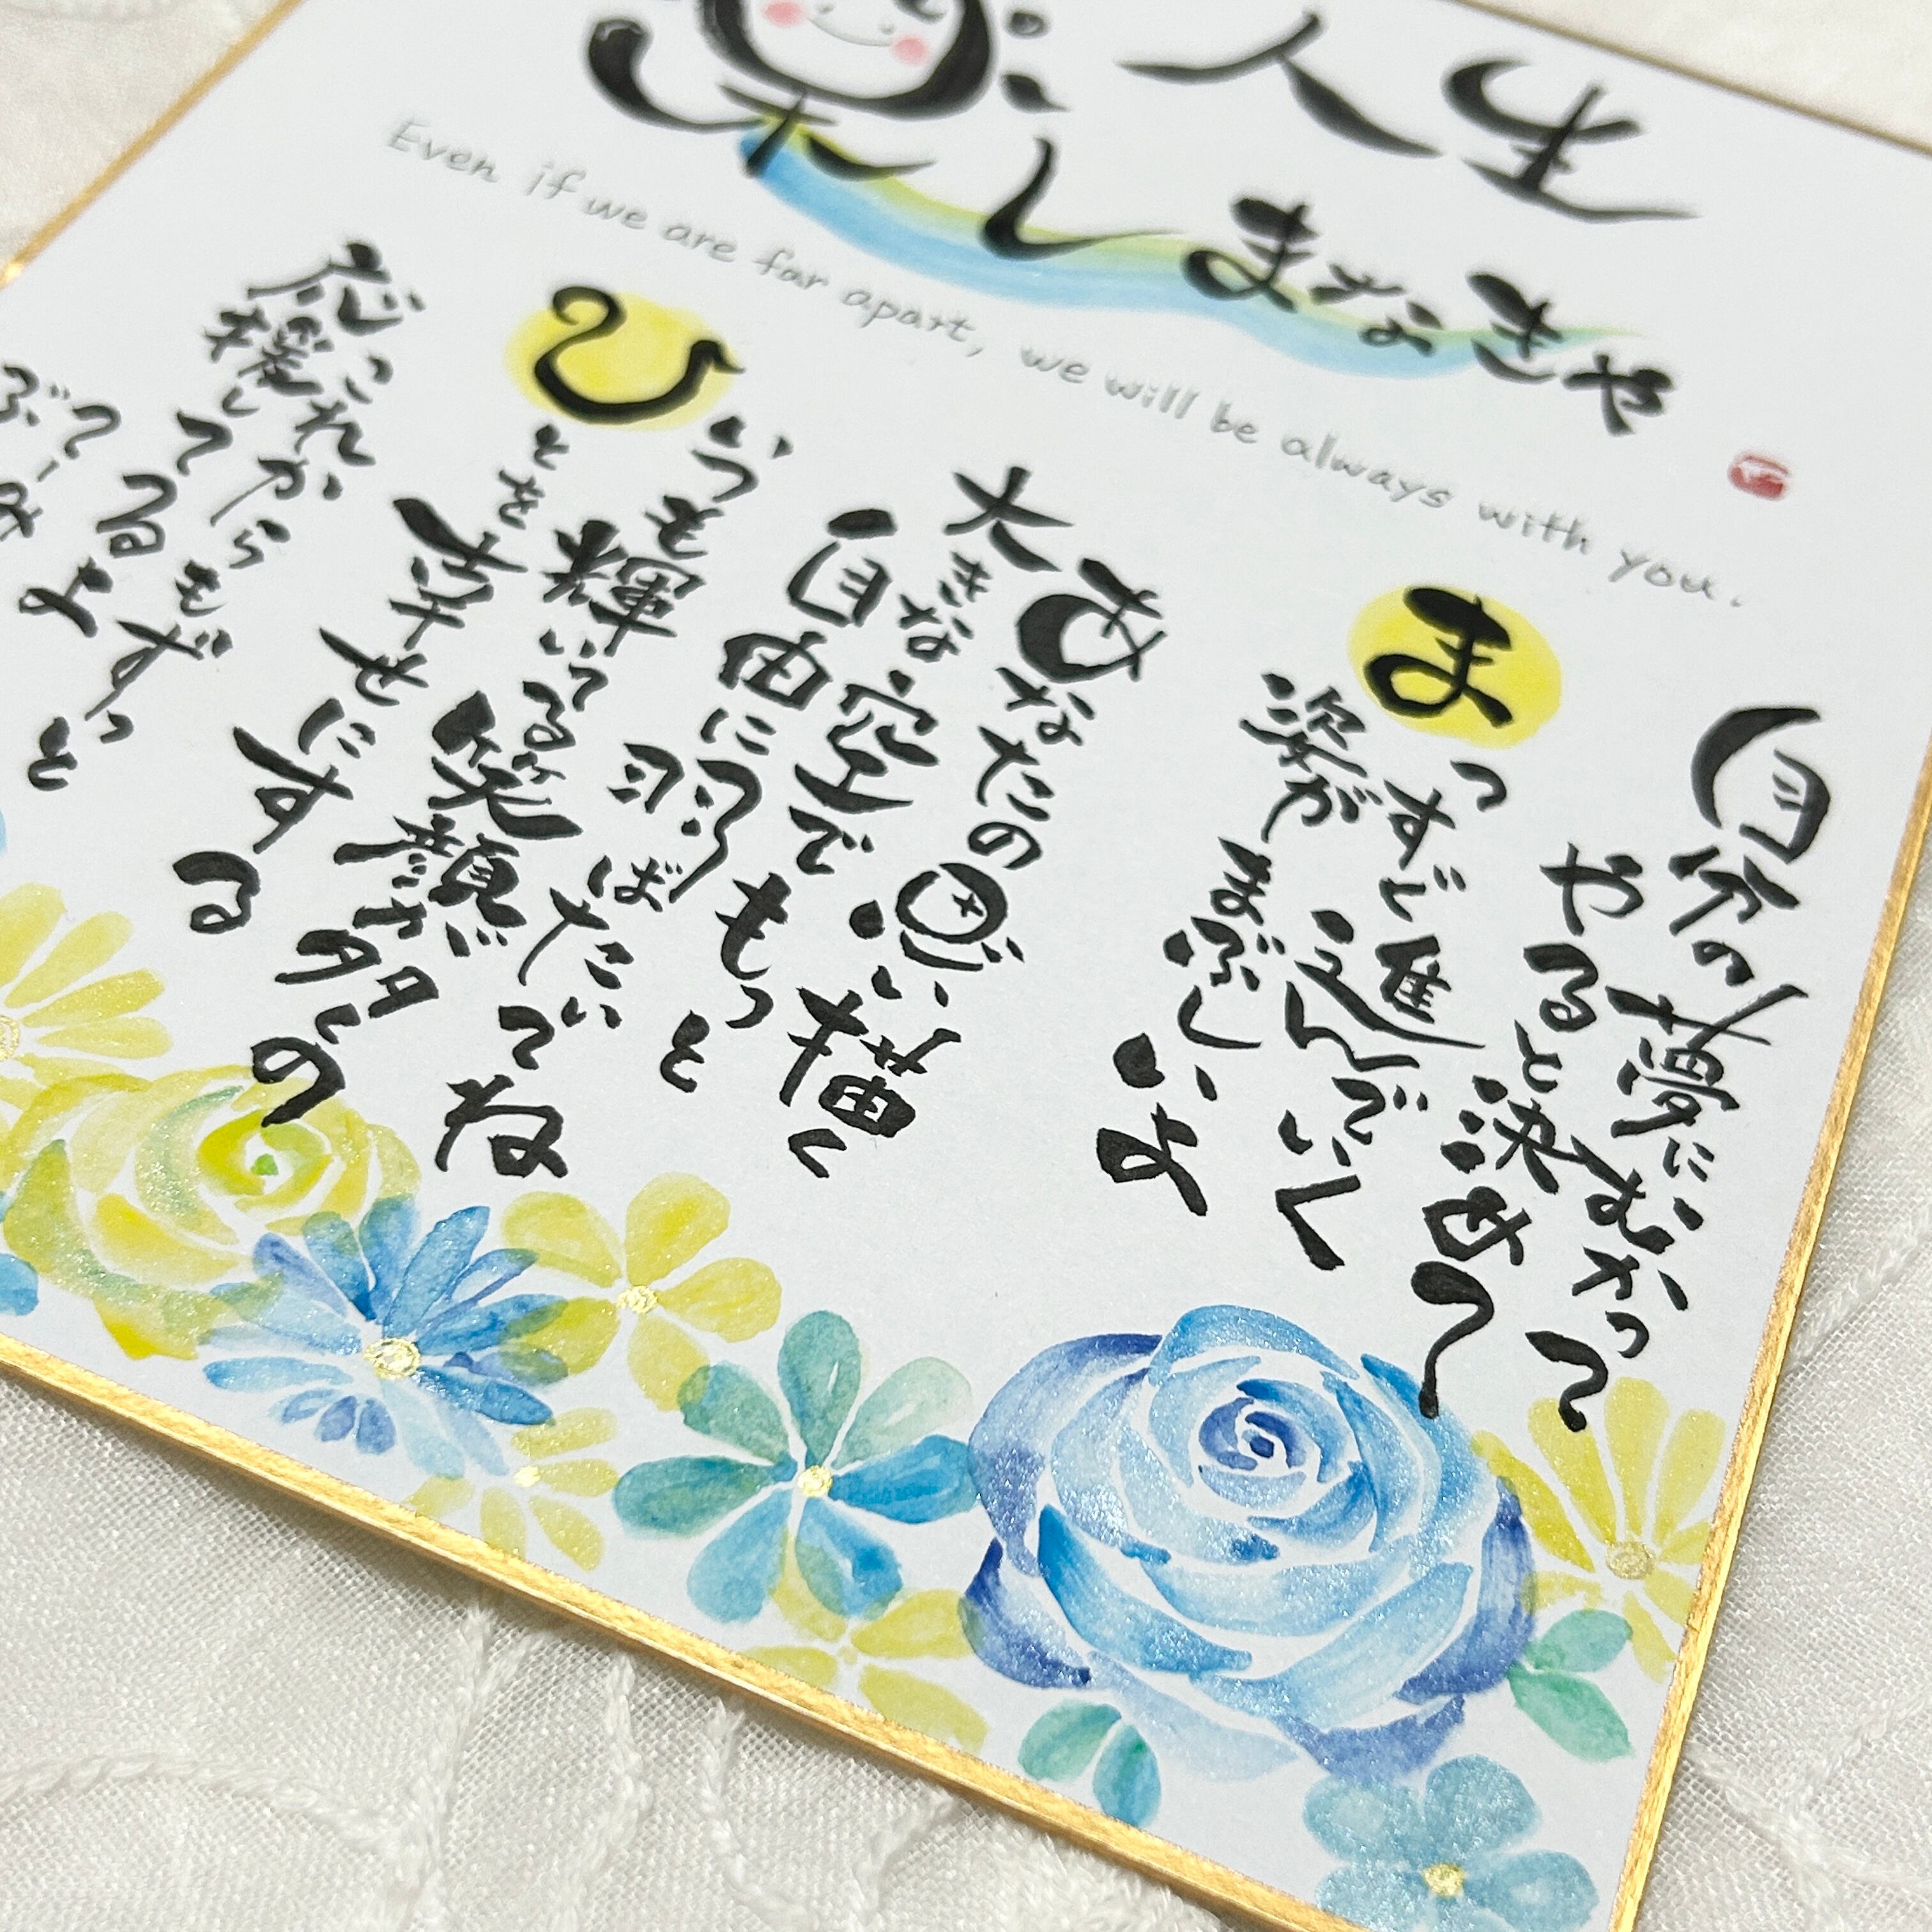 人生
楽しまなきゃ
Even if we are far apart, we will be always with you.
自分の夢にむかって
やると決めて
まっすぐ進んでいく
姿がまぶしいよ
あなたの思い描く
大きな空でもっと
自由に羽ばたいてね
いつも輝いてる笑顔が多くの
ひとを幸せにする
これからもずっと
応援してるよ